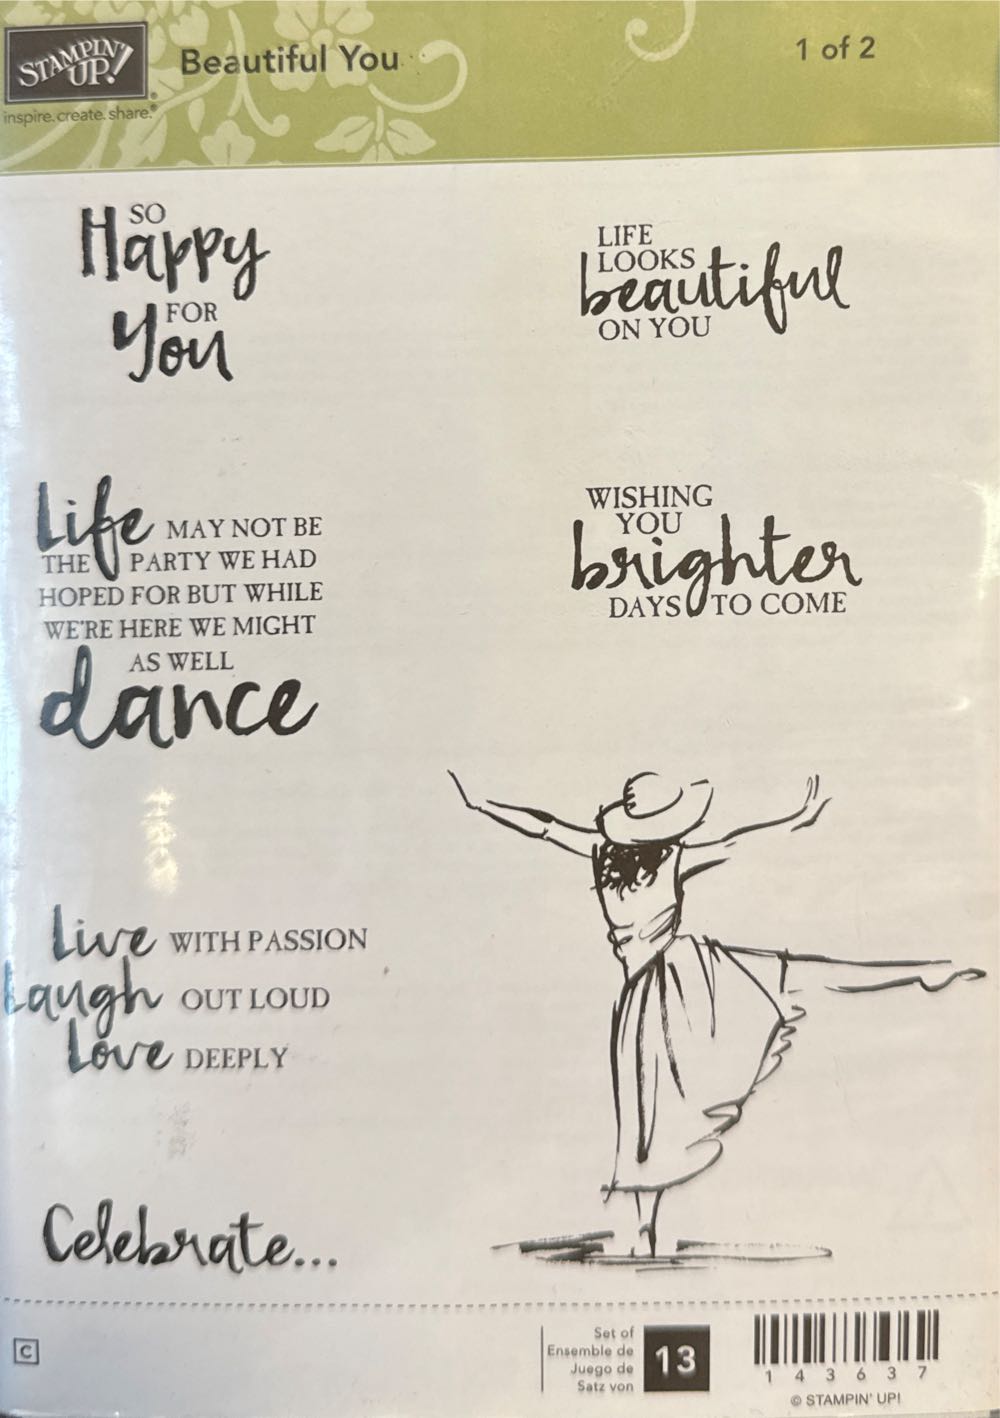 STAMPIN' UP!®
inspire. create. share.®
Beautiful You
1 of 2
SO
Happy
FOR
You
LIFE
LOOKS
beautiful
ON YOU
Life MAY NOT BE
THE PARTY WE HAD
HOPED FOR BUT WHILE
WE'RE HERE WE MIGHT
AS WELL
dance
WISHING
YOU
brighter
DAYS TO COME
Live WITH PASSION
Laugh OUT LOUD
Love DEEPLY
Celebrate...
C
Set of
Ensemble de
Juego de
Satz von
13
143637
© STAMPIN' UP!